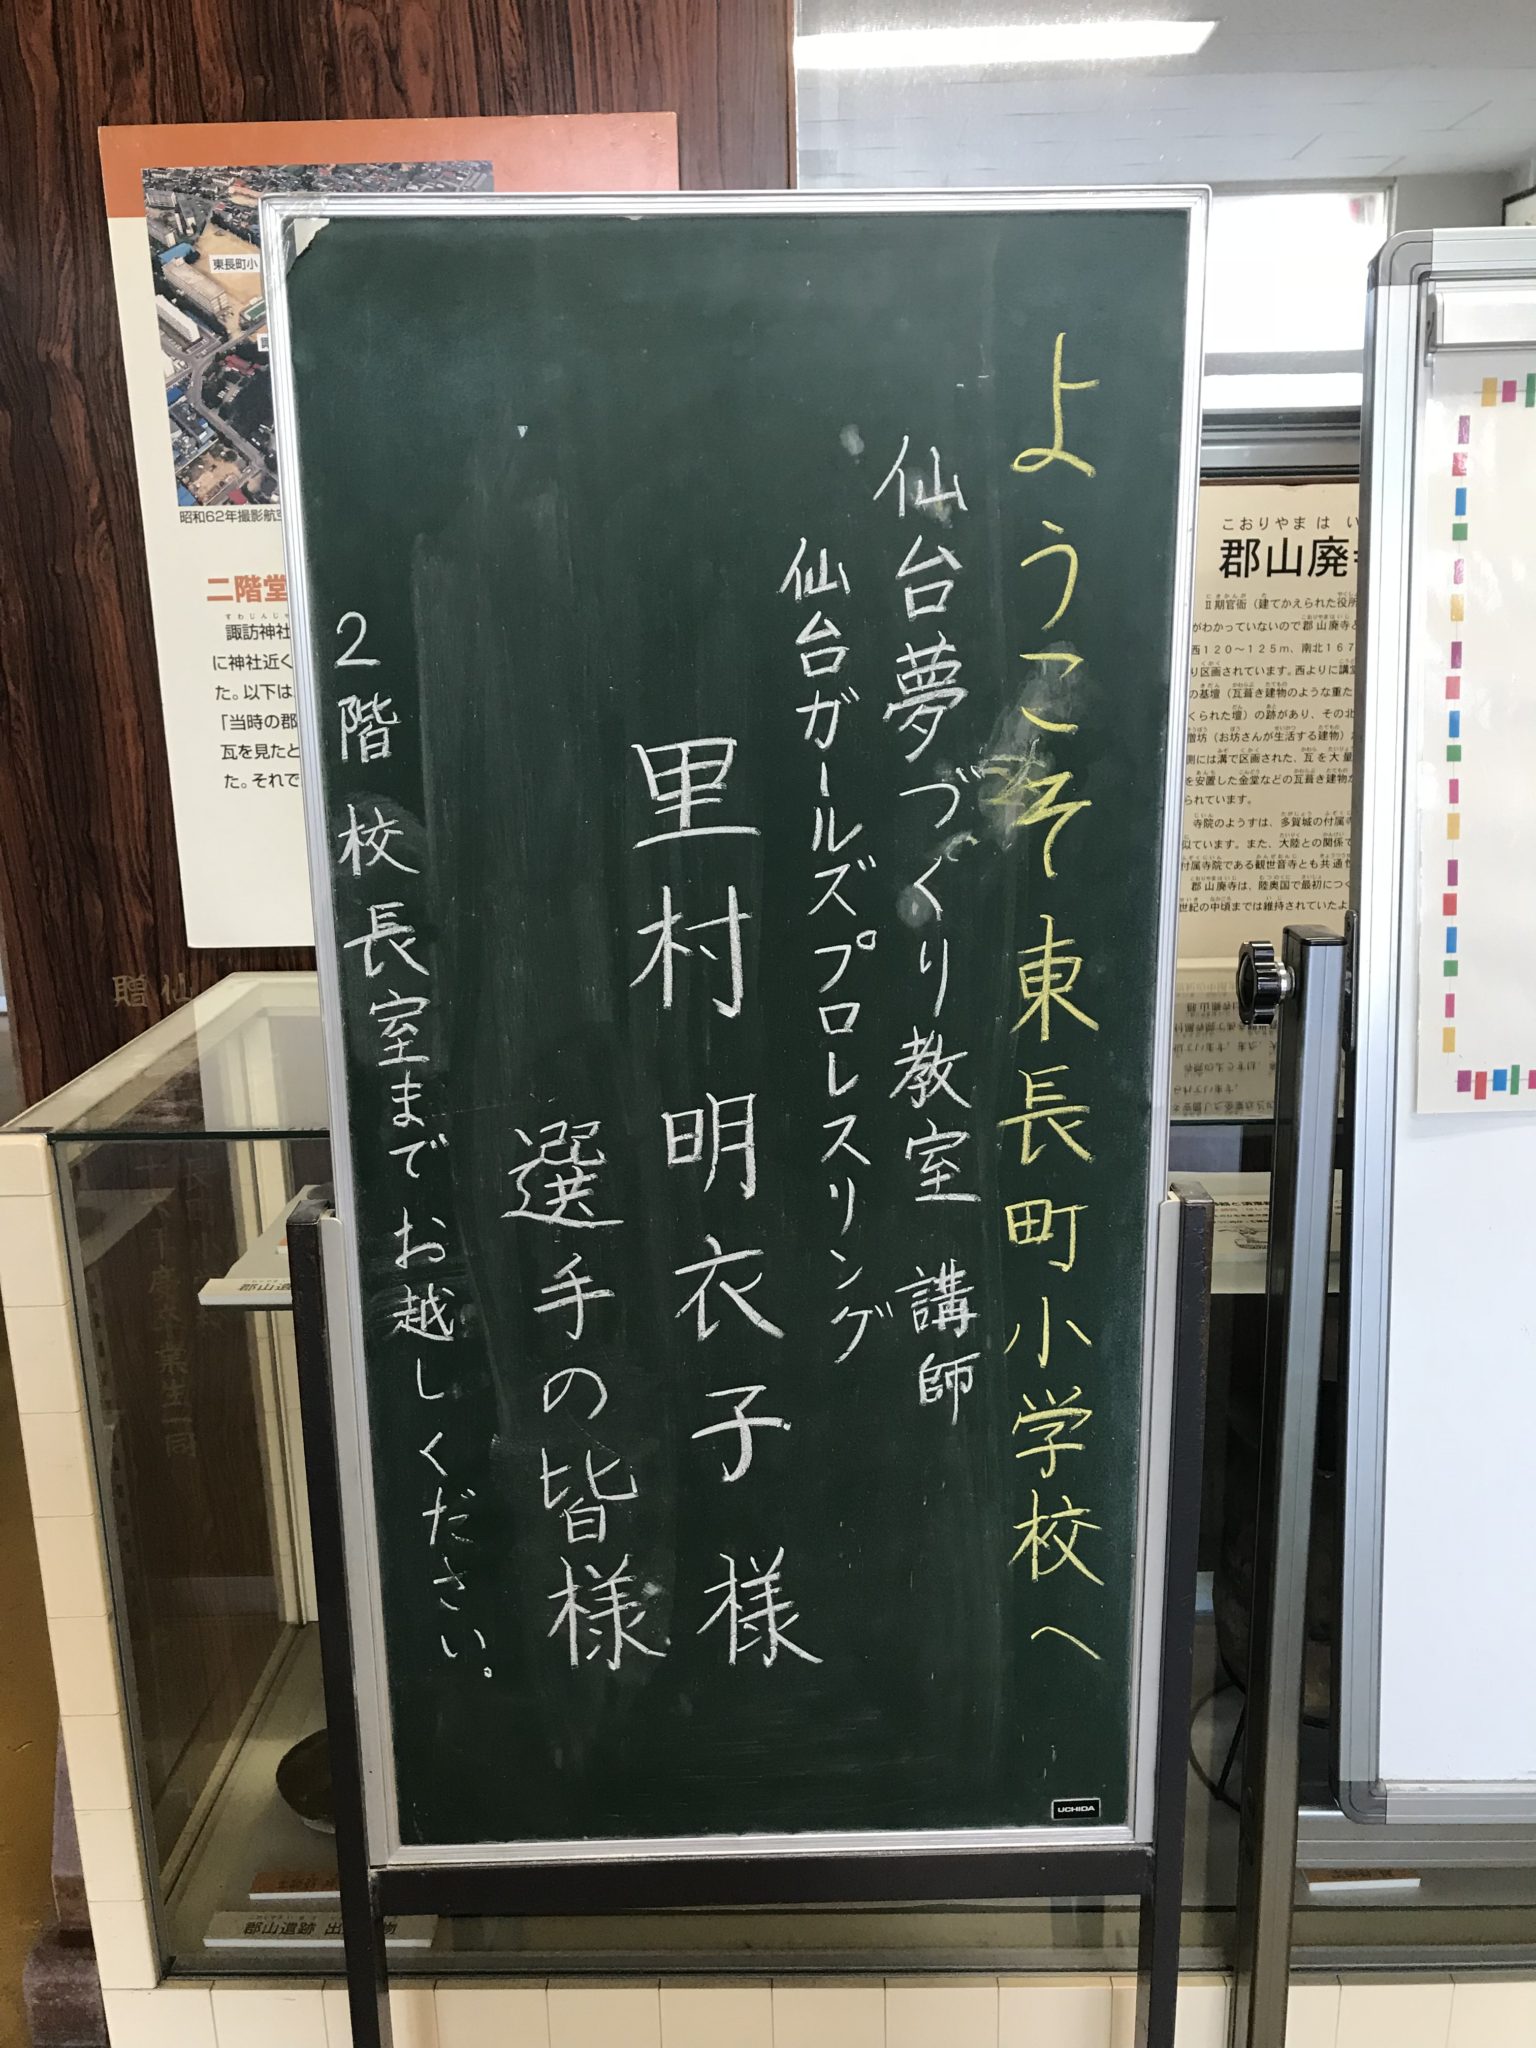 ようこそ 東長町小学校へ
仙台夢づくり教室 講師
仙台ガールズプロレスリング
里村 明衣子 様
選手の皆様
2階 校長室までお越しください。
UCHIDA
東長町小
昭和62年撮影航空
二階堂
すわじんじゃ
諏訪神社
に神社近く
た。以下は
「当時の郡
瓦を見たと
た。それで
こおりやまはい
郡山廃
Ⅱ期官衙（建てかえられた役所
がわかっていないので郡山廃寺と
西120～125m、南北167
り区画されています。西よりに講堂
の基壇（瓦葺き建物のような重た
くられた壇）の跡があり、その北
僧坊（お坊さんが生活する建物）
側には溝で区画された、瓦を大量
を安置した金堂などの瓦葺き建物
られています。
寺院のようすは、多賀城の付属寺
似ています。また、大陸との関係で
付属寺院である観世音寺とも共通性
郡山廃寺は、陸奥国で最初につく
世紀の中頃までは維持されていたよ
贈 仙
業生一同
郡山遺
郡山遺跡 出
物